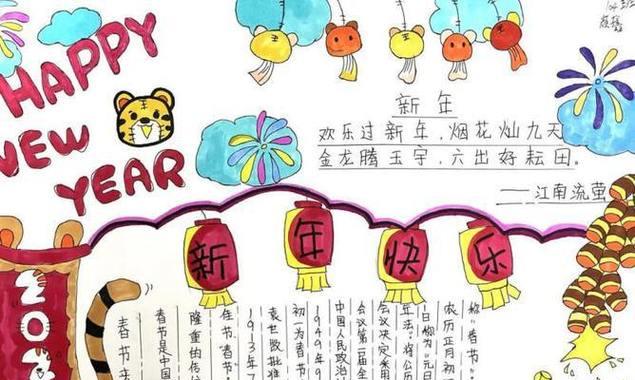 HAPPY
NEW
YEAR
新年
欢乐过新年，烟花灿九天
金龙腾玉宇，六出好耘田。
——江南流萤
新年快乐
202
春节来
春节是中国
隆重的传
佳节。春节
1913年7
袁世凯批准
初一为春节
1949年9
中国人民政治
会议第一届全
会议决定采用
年法。将公历
1日称为“元
农历正月初
称“春节”